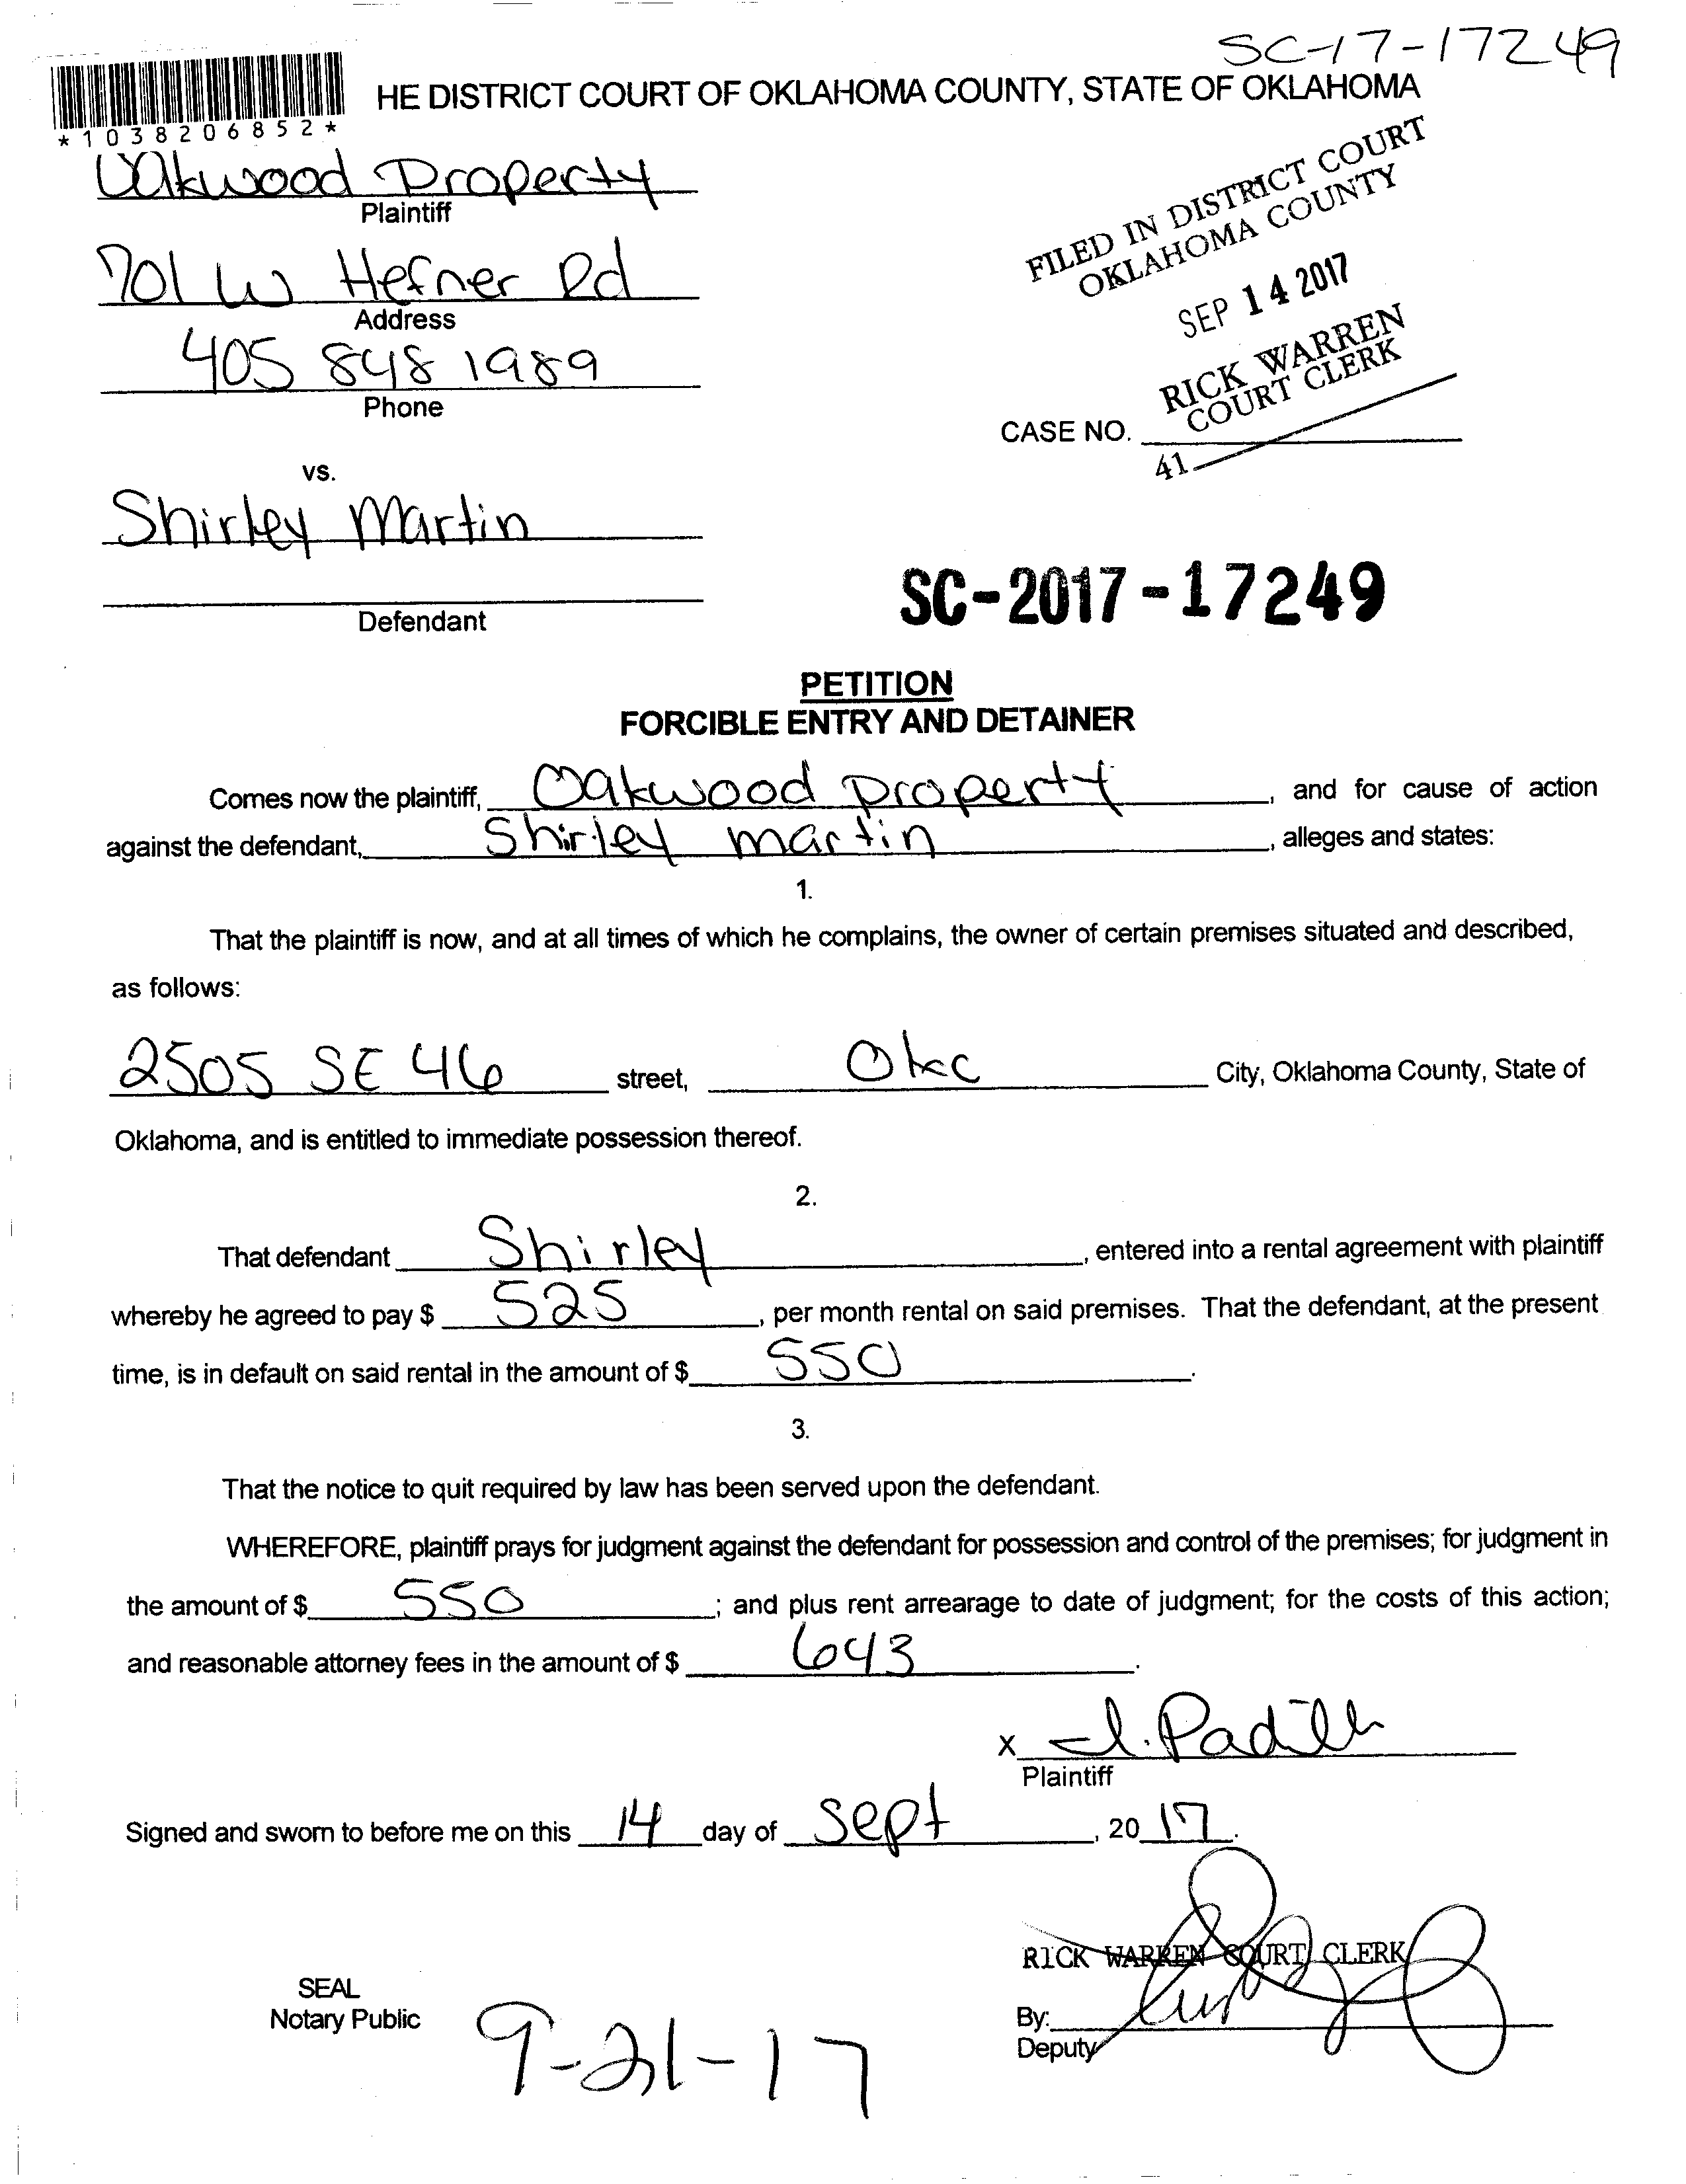 SC-17-17249
HE DISTRICT COURT OF OKLAHOMA COUNTY, STATE OF OKLAHOMA
*1038206852*
Oakwood Property
Plaintiff
701 W Hefner Rd
Address
405 848 1989
Phone
FILED IN DISTRICT COURT
OKLAHOMA COUNTY
SEP 14 2017
RICK WARREN
COURT CLERK
CASE NO.
41
vs.
Shirley Martin
Defendant
SC-2017-17249
PETITION
FORCIBLE ENTRY AND DETAINER
Comes now the plaintiff, Oakwood Property, and for cause of action
against the defendant, Shirley martin, alleges and states:
1.
That the plaintiff is now, and at all times of which he complains, the owner of certain premises situated and described,
as follows:
2505 SE 46 street, Okc City, Oklahoma County, State of
Oklahoma, and is entitled to immediate possession thereof.
2.
That defendant Shirley, entered into a rental agreement with plaintiff
whereby he agreed to pay $ 525, per month rental on said premises. That the defendant, at the present
time, is in default on said rental in the amount of $ 550.
3.
That the notice to quit required by law has been served upon the defendant.
WHEREFORE, plaintiff prays for judgment against the defendant for possession and control of the premises; for judgment in
the amount of $ 550; and plus rent arrearage to date of judgment; for the costs of this action;
and reasonable attorney fees in the amount of $ 643.
x I. Padilla
Plaintiff
Signed and sworn to before me on this 14 day of Sept, 20 17.
RICK WARREN COURT CLERK
SEAL
Notary Public
By:
Deputy
9-21-17